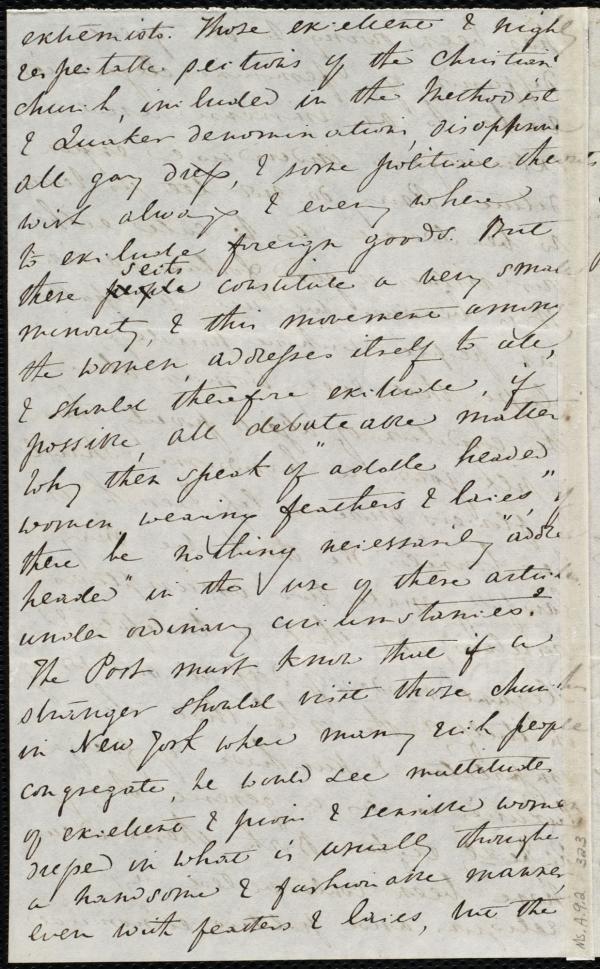 extremists. Those excellent & highly
respectable sections of the Christian
church, included in the Methodist
& Quaker denominations, disapprove
all gay dress, & some politicians the
wish always & every where
to exclude foreign goods. But
sects
these people constitute a very small
minority, & this movement among
the women, addresses itself to all,
& should therefore exclude, if
possible, all debateable matter.
Why then speak of "addle headed
women, wearing feathers & laces," if
there be nothing necessarily "addle
headed" in the use of these articles
under ordinary circumstances?
The Post must know that if a
stranger should visit those churches
in New York where many rich people
congregate, he would see multitudes
of excellent & pious & sensible women
dressed in what is usually thought
a handsome & fashionable manner,
even with feathers & laces, but the
Ms. A.9.2 323